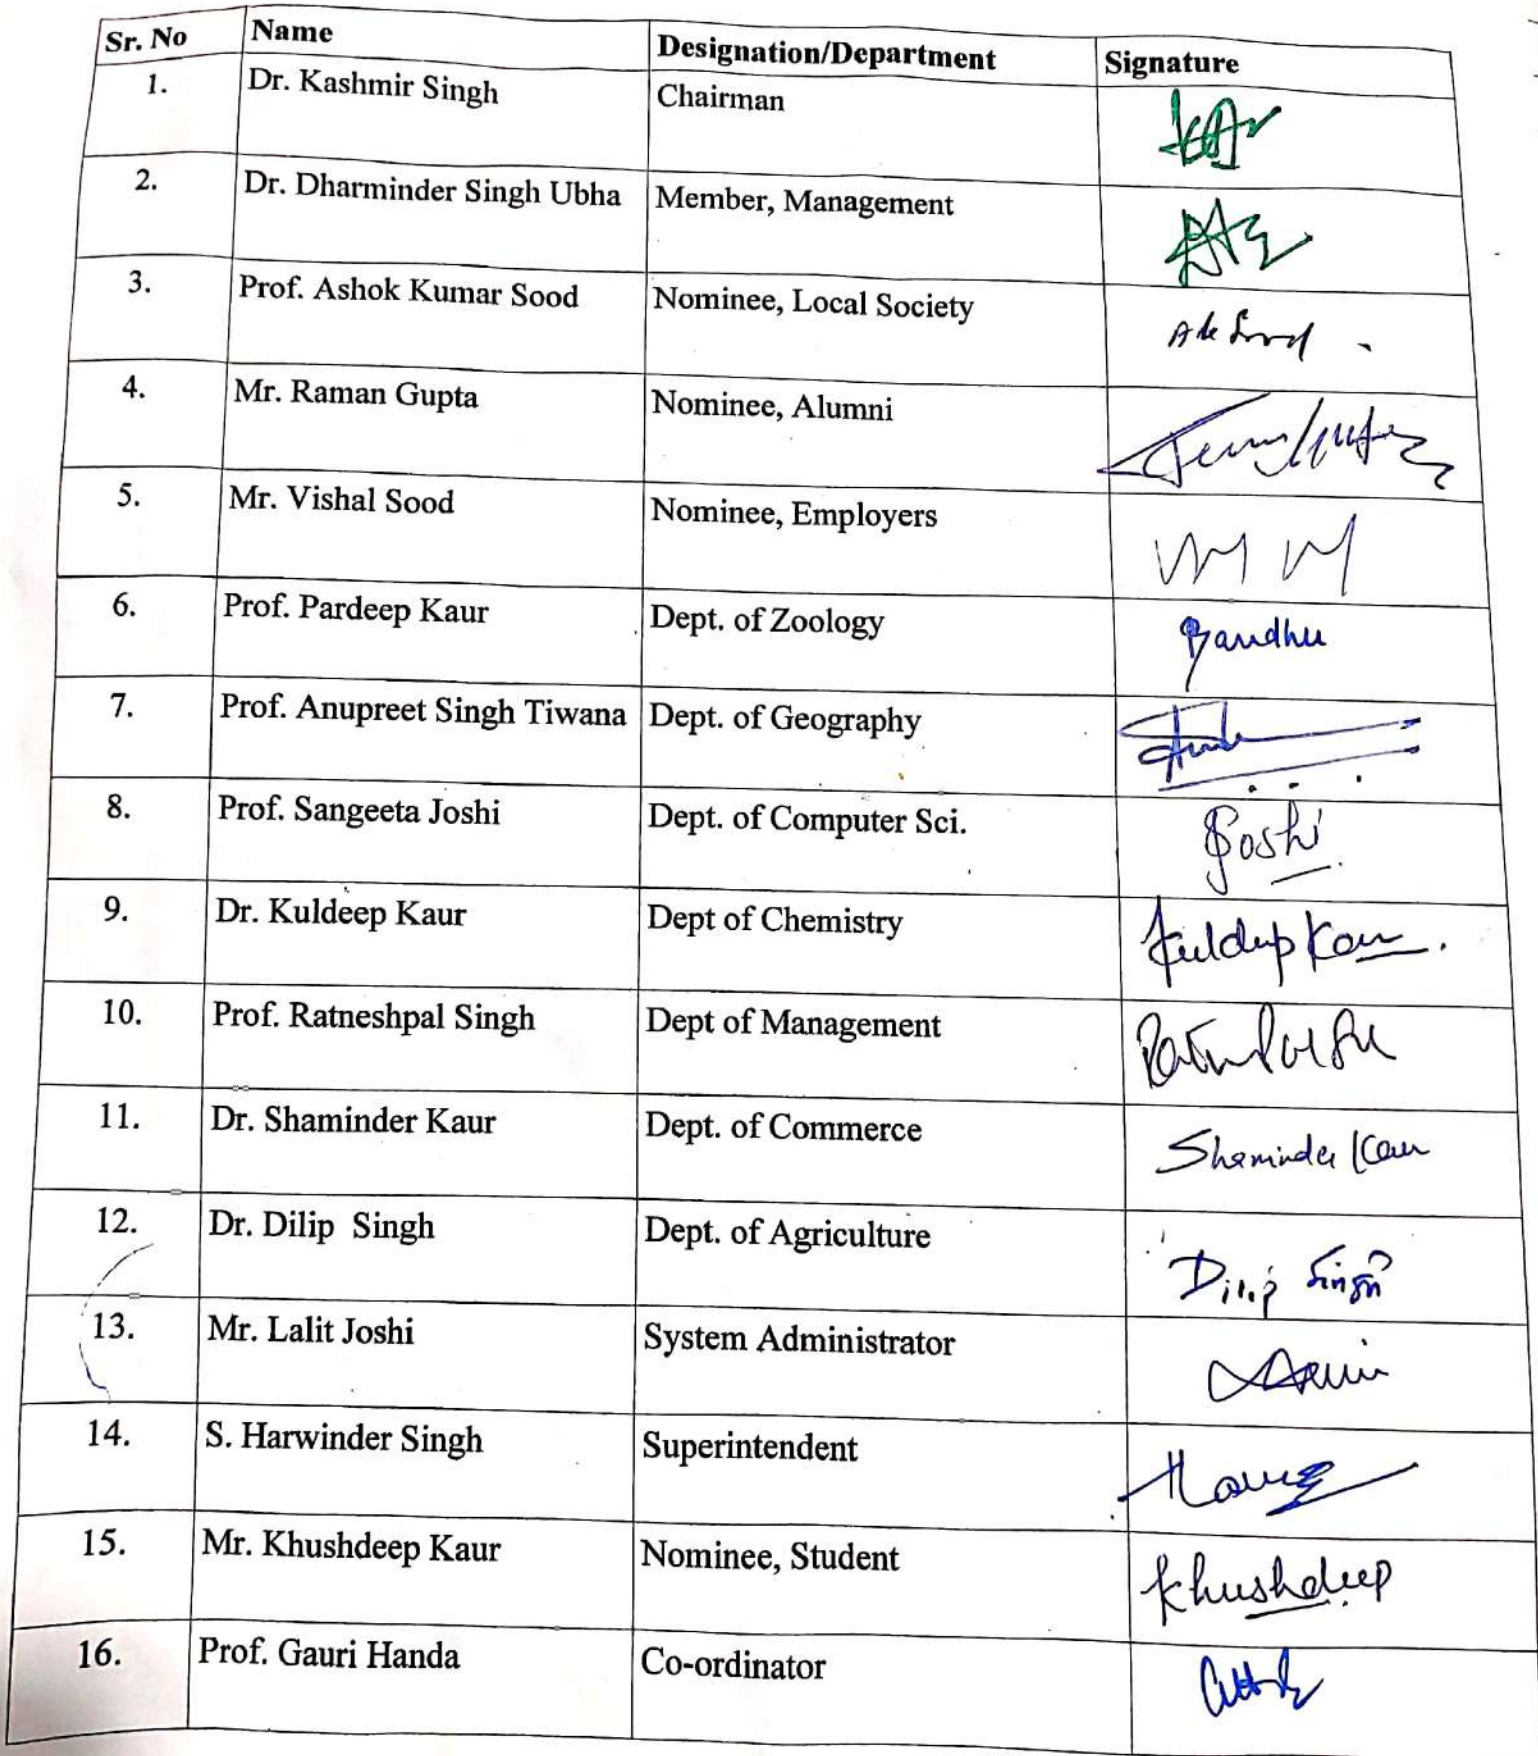 Sr. No Name Designation/Department Signature
1. Dr. Kashmir Singh Chairman
2. Dr. Dharminder Singh Ubha Member, Management
3. Prof. Ashok Kumar Sood Nominee, Local Society
4. Mr. Raman Gupta Nominee, Alumni
5. Mr. Vishal Sood Nominee, Employers
6. Prof. Pardeep Kaur Dept. of Zoology
7. Prof. Anupreet Singh Tiwana Dept. of Geography
8. Prof. Sangeeta Joshi Dept. of Computer Sci. Joshi
9. Dr. Kuldeep Kaur Dept of Chemistry Kuldeep Kaur.
10. Prof. Ratneshpal Singh Dept of Management
11. Dr. Shaminder Kaur Dept. of Commerce Shaminder Kaur
12. Dr. Dilip Singh Dept. of Agriculture Dilip Singh
13. Mr. Lalit Joshi System Administrator
14. S. Harwinder Singh Superintendent
15. Mr. Khushdeep Kaur Nominee, Student Khushdeep
16. Prof. Gauri Handa Co-ordinator